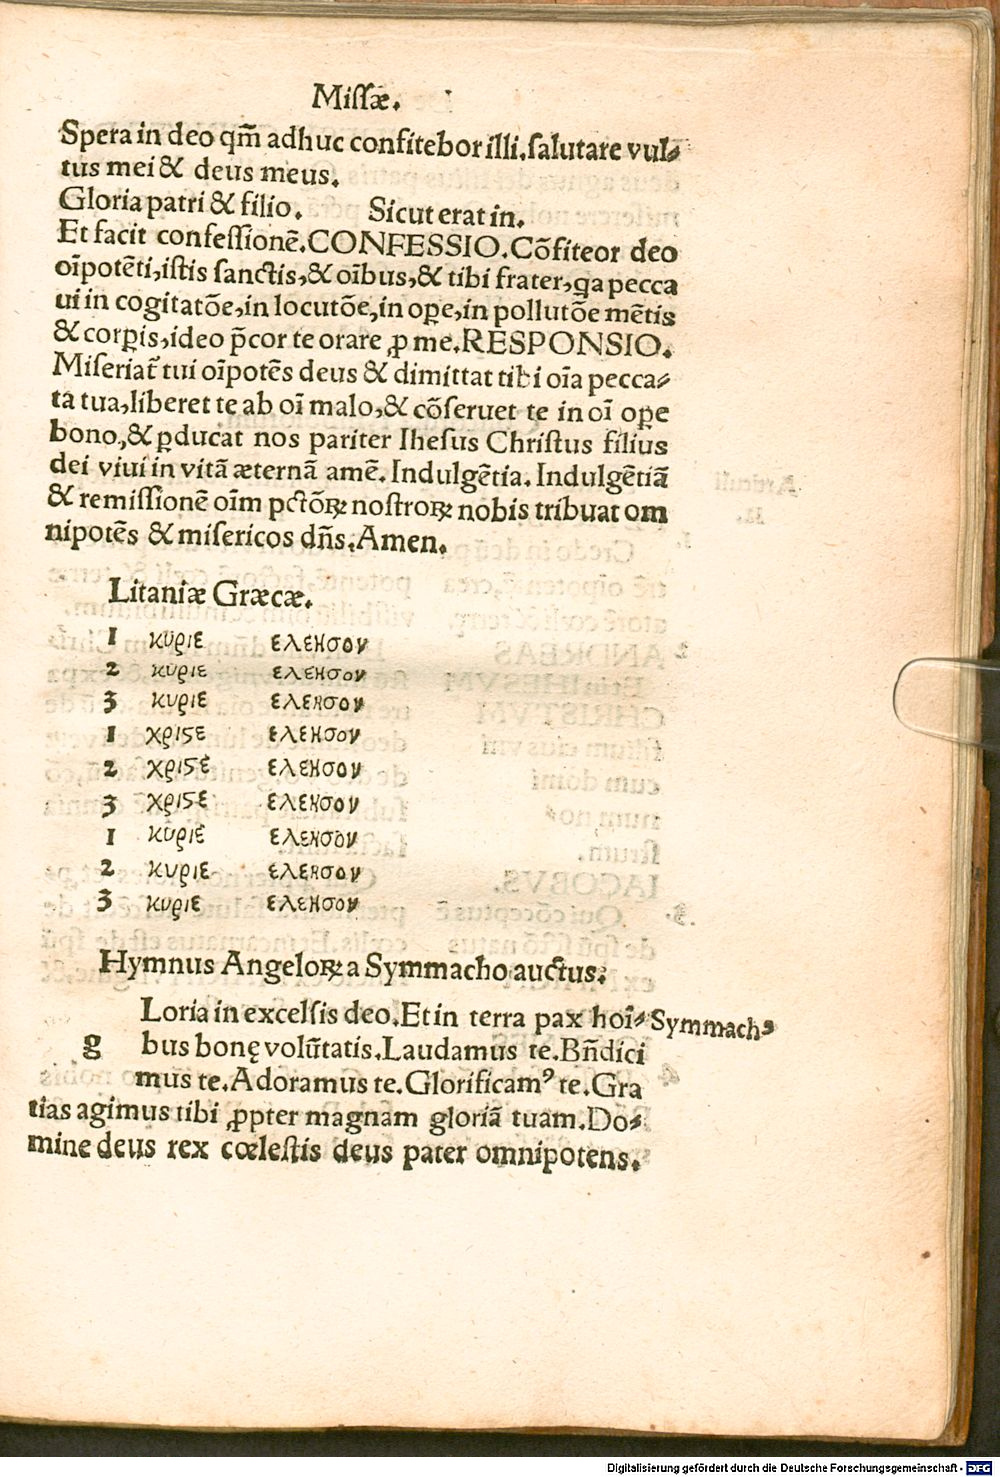 Missæ.
Spera in deo qm̃ adhuc confitebor illi. salutare vul⸗
tus mei & deus meus.
Gloria patri & filio. Sicut erat in.
Et facit confessionẽ. CONFESSIO. Cõfiteor deo
oĩpotẽti, istis sanctis, & oĩbus, & tibi frater, qa pecca
ui in cogitatõe, in locutõe, in oꝑe, in pollutõe mẽtis
& corꝑis, ideo p̃cor te orare ꝓ me. RESPONSIO.
Miseriat̃ tui oĩpotẽs deus & dimittat tibi oĩa pecca⸗
ta tua, liberet te ab oĩ malo, & cõseruet te in oĩ oꝑe
bono, & ꝑducat nos pariter Ihesus Christus filius
dei viui in vitã æternã amẽ. Indulgẽtia. Indulgẽtiã
& remissionẽ oĩm pctõꝝ nostroꝝ nobis tribuat om
nipotẽs & misericos dñs. Amen.
Litaniæ Græcæ.
1 κύριε ελεησον
2 κύριε ελεησον
3 κυριε ελεησον
1 χριϛε ελεησον
2 χριϛέ ελεησον
3 χριϛε ελεησον
1 κυριέ ελεησον
2 κυριε ελεησον
3 κυριε ελεησον
Hymnus Angeloꝝ a Symmacho auctus.
Loria in excelsis deo. Et in terra pax hoĩ⸗ Symmachꝰ
g bus bonę volũtatis. Laudamus te. Bñdici
mus te. Adoramus te. Glorificamꝰ te. Gra
tias agimus tibi ꝓpter magnam gloriã tuam. Do⸗
mine deus rex cœlestis deus pater omnipotens.
Digitalisierung gefördert durch die Deutsche Forschungsgemeinschaft - DFG